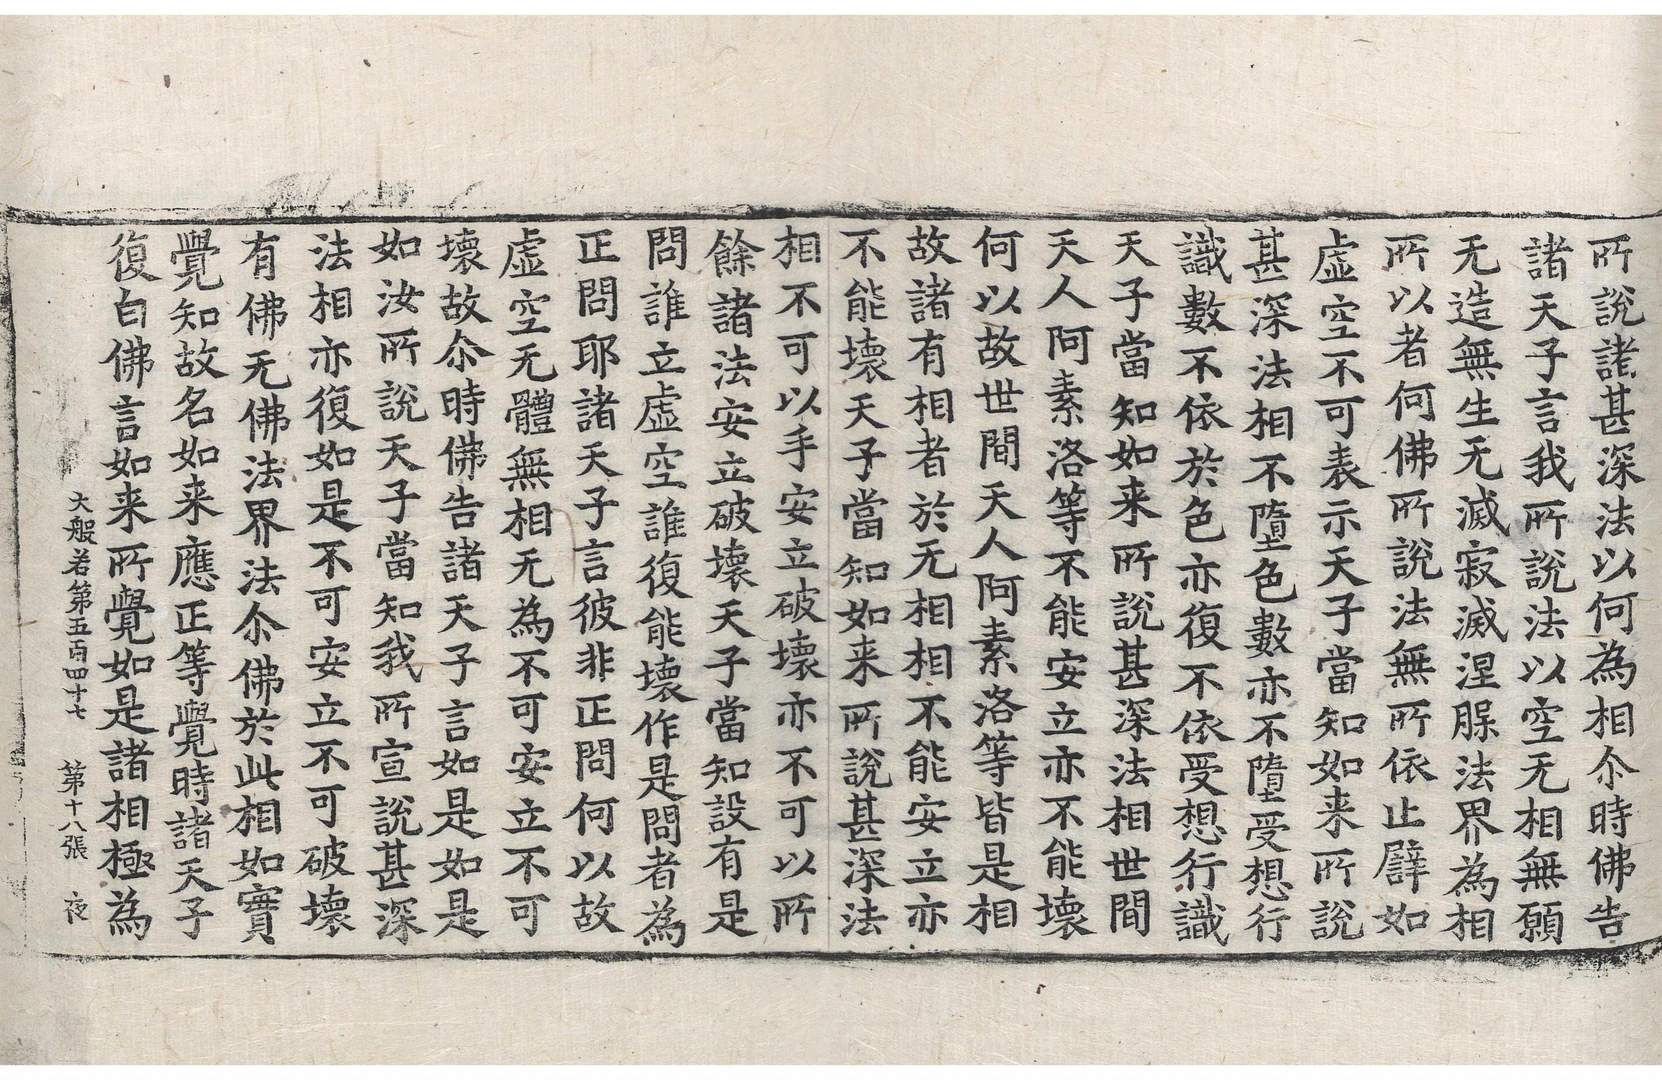 所說諸甚深法以何為相尒時佛告
諸天子言我所說法以空无相無願
无造無生无滅寂滅涅脲法界為相
所以者何佛所說法無所依止譬如
虛空不可表示天子當知如来所說
甚深法相不墮色數亦不墮受想行
識數不依於色亦復不依受想行識
天子當知如来所說甚深法相世間
天人阿素洛等不能安立亦不能壞
何以故世間天人阿素洛等皆是相
故諸有相者於无相相不能安立亦
不能壞天子當知如来所說甚深法
相不可以手安立破壞亦不可以所
餘諸法安立破壞天子當知設有是
問誰立虛空誰復能壞作是問者為
正問耶諸天子言彼非正問何以故
虛空无體無相无為不可安立不可
壞故尒時佛告諸天子言如是如是
如汝所說天子當知我所宣說甚深
法相亦復如是不可安立不可破壞
有佛无佛法界法尒佛於此相如實
覺知故名如来應正等覺時諸天子
復白佛言如来所覺如是諸相極為
大般若第五百四十七 第十八張 夜